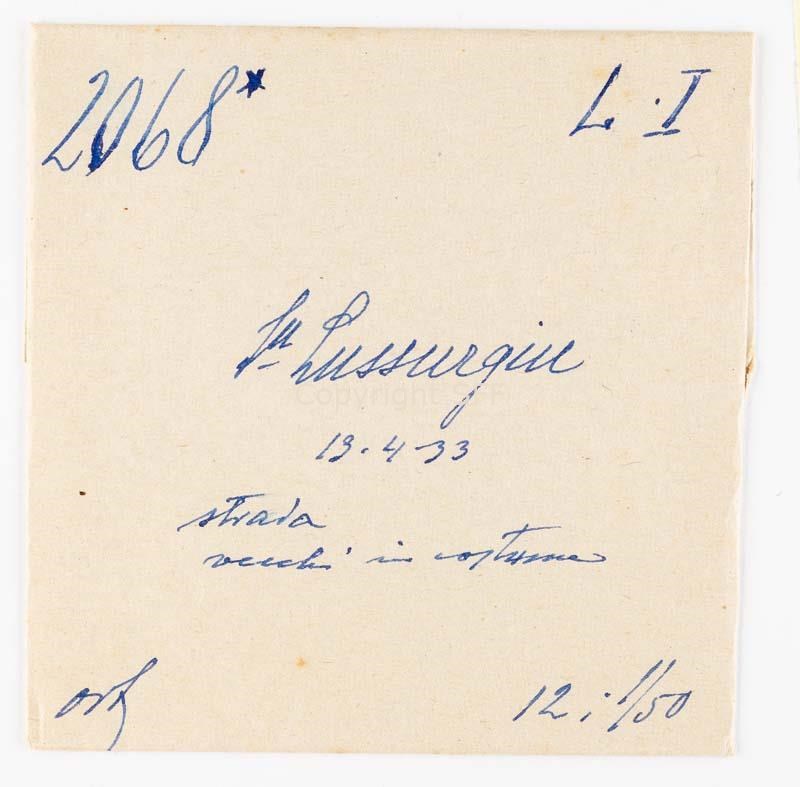 2068* L. I
Su Lussurgiu
13.4-33
strada
vecchi in costume
12; 1/50
Copyright SFF